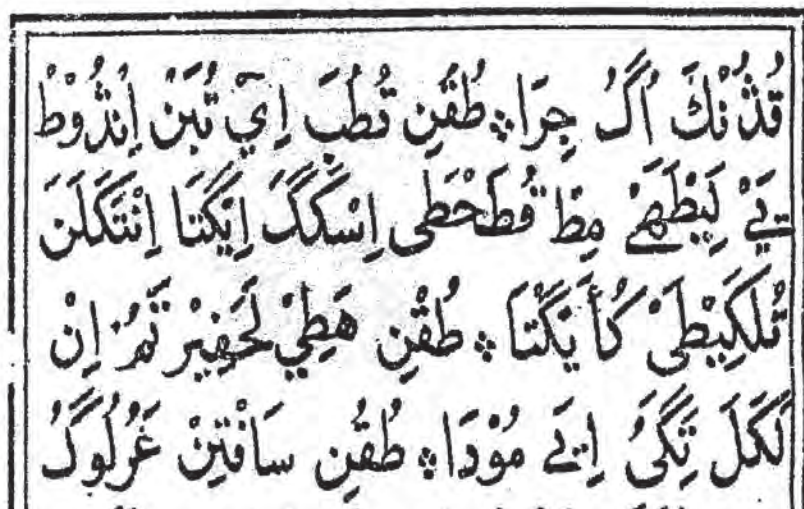 قُدُنْكَ اُگُ جِرَا ؞ طُقَنِ تُطُبَ اِيٓ تُبَنْ اِنْدُوْطْ
يَےْ لَيِطَهَےْ مِطْ قُطَحْطَى اِسْكَگَ اِيَكَنَا اِنْتَكَلَنَ
تُلَكَيِطَىْ كُأَيَكْتَا ؞ طُقْنِ هَطِيْ لَحَفِيْرْ نَمُرْ اِنْ
لَكَلَ تِگَىُ اِيَےْ مُوْدَا ؞ طُقُنِ سَافْتِنْ غَرُلُوگُ